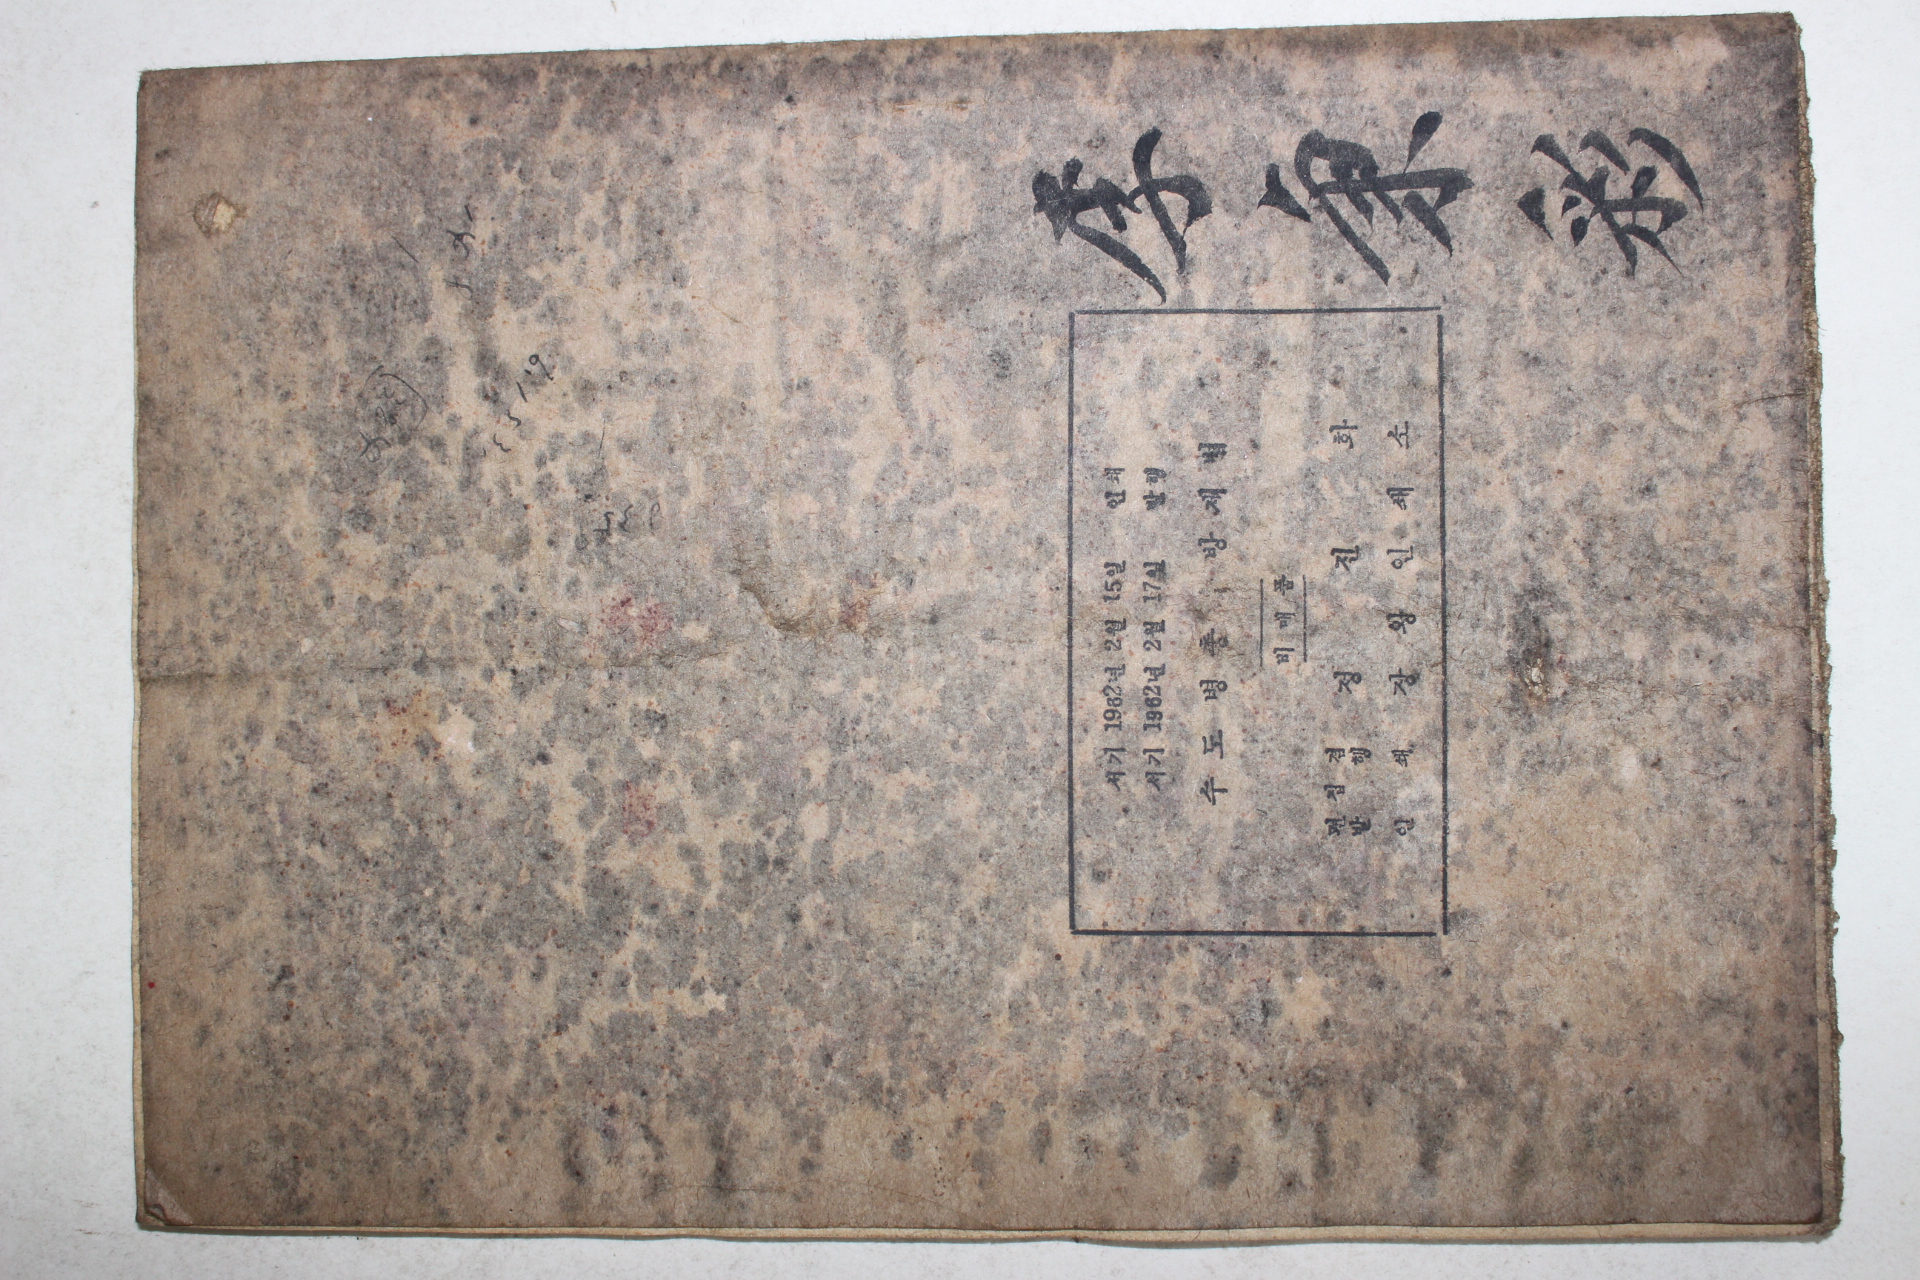 서기 1962년 2월 15일 인쇄
서기 1962년 2월 17일 발행
수 도 병 충 방 제 법
비 매 품
편 집 겸
발 행 정 진 화
인 쇄 장 왕 인 쇄 소
李象彩